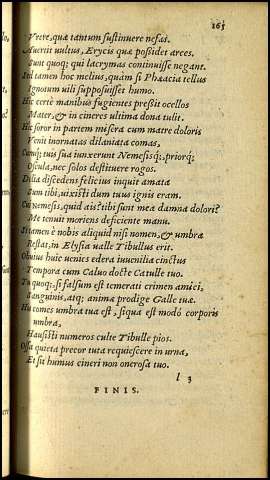 163
Vrere, quæ tantum sustinuere nefas.
Auertit uultus, Erycis quæ possidet arces.
Sunt quoq; qui lacrymas continuisse negant.
Sed tamen hoc melius, quàm si Phæacia tellus
Ignotum uili supposuisset humo.
Hic certè manibus fugientes pressit ocellos
Mater, & in cineres ultima dona tulit.
Hic soror in partem misera cum matre doloris
Venit inornatas dilaniata comas,
Cumq; tuis sua iunxerunt Nemesisq;, priorq;
Oscula, nec solos destituere rogos.
Delia discedens felicius inquit amata
Sum tibi, uixisti dum tuus ignis eram.
Cui Nemesis, quid ais? tibi sunt mea damna dolori?
Me tenuit moriens deficiente manu.
Si tamen è nobis aliquid nisi nomen, & umbra
Restat, in Elysia ualle Tibullus erit.
Obuius huic uenies edera iuuenilia cinctus
Tempora cum Caluo docte Catulle tuo.
Tu quoq;, si falsum est temerati crimen amici,
Sanguinis, atq; animæ prodige Galle tuæ.
His comes umbra tua est, si qua est modò corporis
umbra,
Hausisti numeros culte Tibulle pios.
Ossa quieta precor tuta requiescere in urna,
Et sit humus cineri non onerosa tuo.
l 3
FINIS.